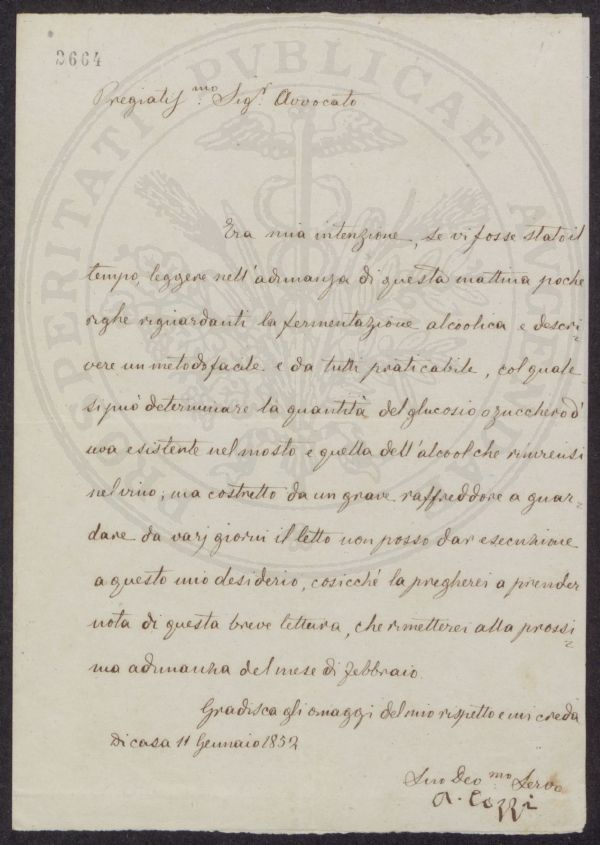 2664
PROSPERITATI PVBLICAE AVGENDAE
Pregiatis.mo Sig.r Avvocato
Era mia intenzione, se vi fosse stato il
tempo, leggere nell'adunanza di questa mattina poche
righe riguardanti la fermentazione alcoolica e descri-
vere un metodo facile e da tutti praticabile, col quale
si può determinare la quantità del glucosio o zucchero d'
uva esistente nel mosto e quella dell'alcool che rinviensi
nel vino; ma costretto da un grave raffreddore a guar-
dare da varj giorni il letto non posso dar esecuzione
a questo mio desiderio, cosicché la pregherei a prender
nota di questa breve lettura, che rimetterei alla prossi-
ma adunanza del mese di febbraio.
Gradisca gli omaggi del mio rispetto e mi creda
Di casa 11 Gennaio 1852
Suo Dev.mo Servo
A. Cozzi